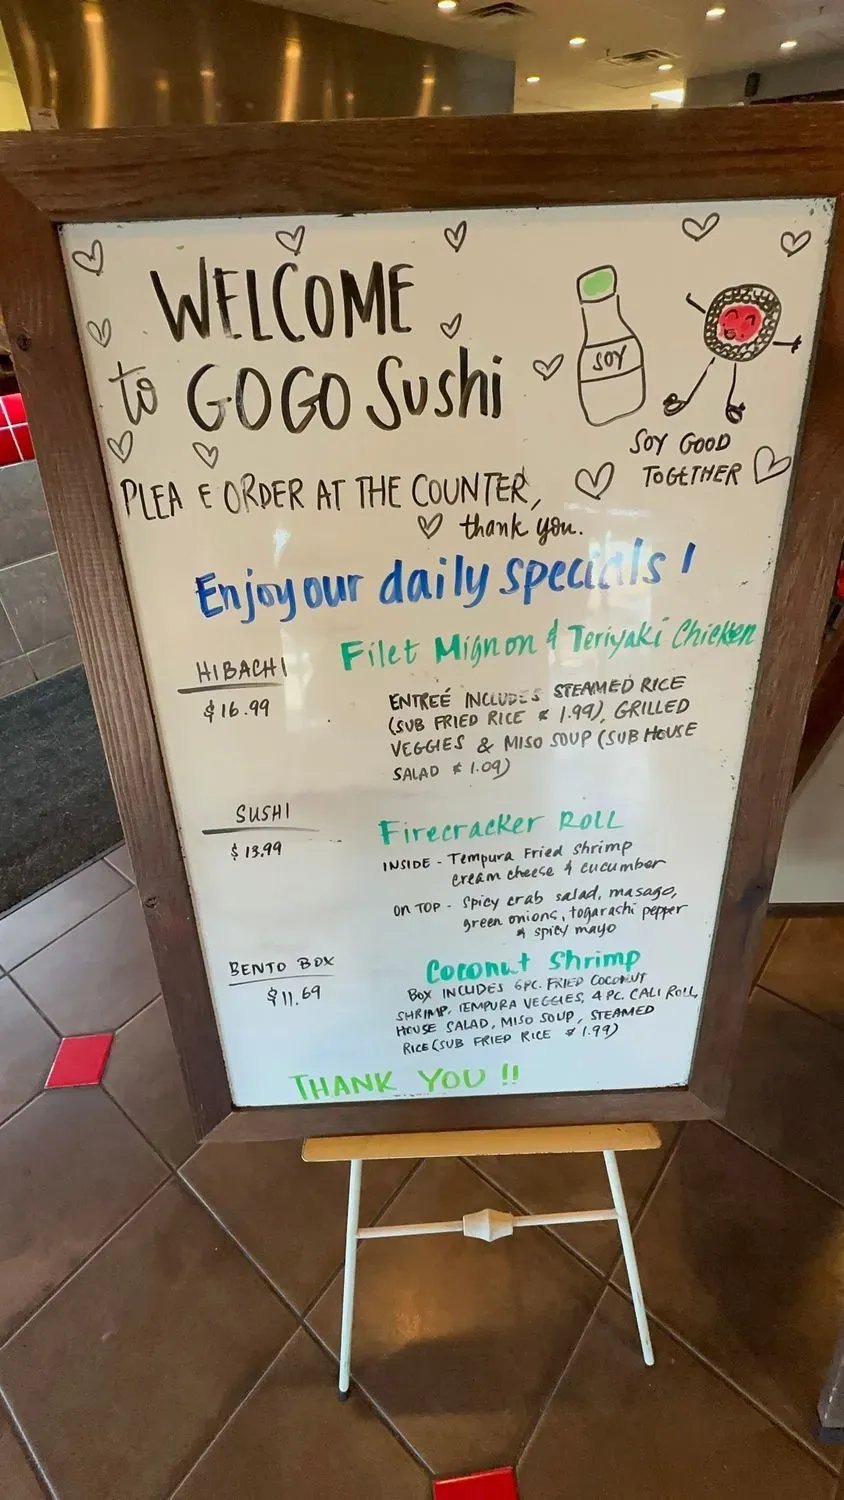 WELCOME
to GOGO Sushi
SOY
SOY GOOD
TOGETHER
PLEA E ORDER AT THE COUNTER,
thank you.
Enjoy our daily specials!
HIBACHI
$16.99
Filet Mignon & Teriyaki Chicken
ENTREÉ INCLUDES STEAMED RICE
(SUB FRIED RICE $ 1.99), GRILLED
VEGGIES & MISO SOUP (SUB HOUSE
SALAD $ 1.09)
SUSHI
$13.99
Firecracker ROLL
INSIDE - Tempura Fried Shrimp
cream cheese & cucumber
ON TOP - Spicy crab salad, masago,
green onions, togarashi pepper
& spicy mayo
BENTO BOX
$11.69
Coconut Shrimp
BOX INCLUDES 6PC. FRIED COCONUT
SHRIMP, TEMPURA VEGGIES, 4 PC. CALI ROLL,
HOUSE SALAD, MISO SOUP, STEAMED
RICE (SUB FRIED RICE $ 1.99)
THANK YOU !!